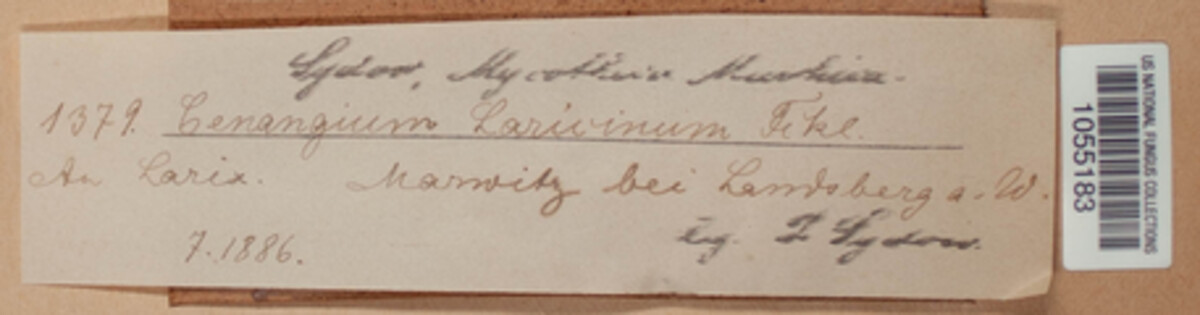 Sydow, Mycotheca Marchica
1379. Cenangium Laricinum Fckl.
An Larix. Marwitz bei Landsberg a. W.
7.1886. leg. P. Sydow.
US NATIONAL FUNGUS COLLECTIONS
1055183